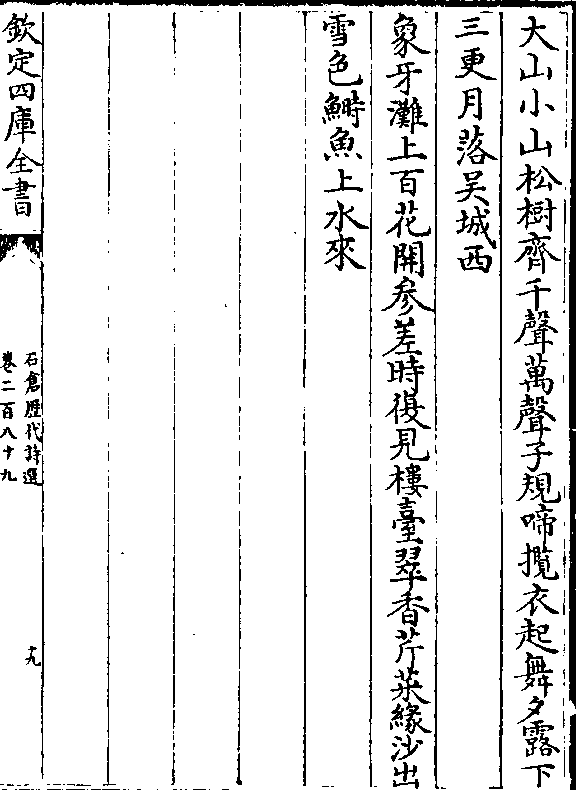 大山小山松樹齊千聲萬聲子規啼攬衣起舞夕露下
三更月落吴城西
象牙灘上百花開參差時復見樓臺翠香芹菜緣沙出
雪色鰣魚上水來
欽定四庫全書
石倉歴代詩選
卷二百八十九
十九